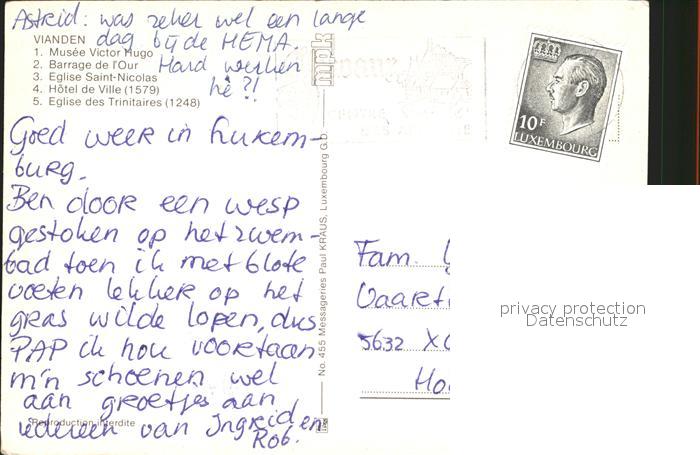 Astrid: was zeker wel een lange
dag bij de HEMA.
Hard werken
hè?!
VIANDEN
1. Musée Victor Hugo
2. Barrage de l'Our
3. Eglise Saint-Nicolas
4. Hôtel de Ville (1579)
5. Eglise des Trinitaires (1248)
Goed weer in Luxem-
burg.
Ben door een wesp
gestoken op het zwem-
bad toen ik met blote
voeten lekker op het
gras wilde lopen, dus
PAP ik hou voortaan
m'n schoenen wel
aan groetjes aan
iedereen van Ingrid en
Rob.
Reproduction interdite
No. 455 Messageries Paul KRAUS, Luxembourg G.D.
mpk
10F
LUXEMBOURG
Fam.
Vaart
5632 XC
Ho
privacy protection
Datenschutz